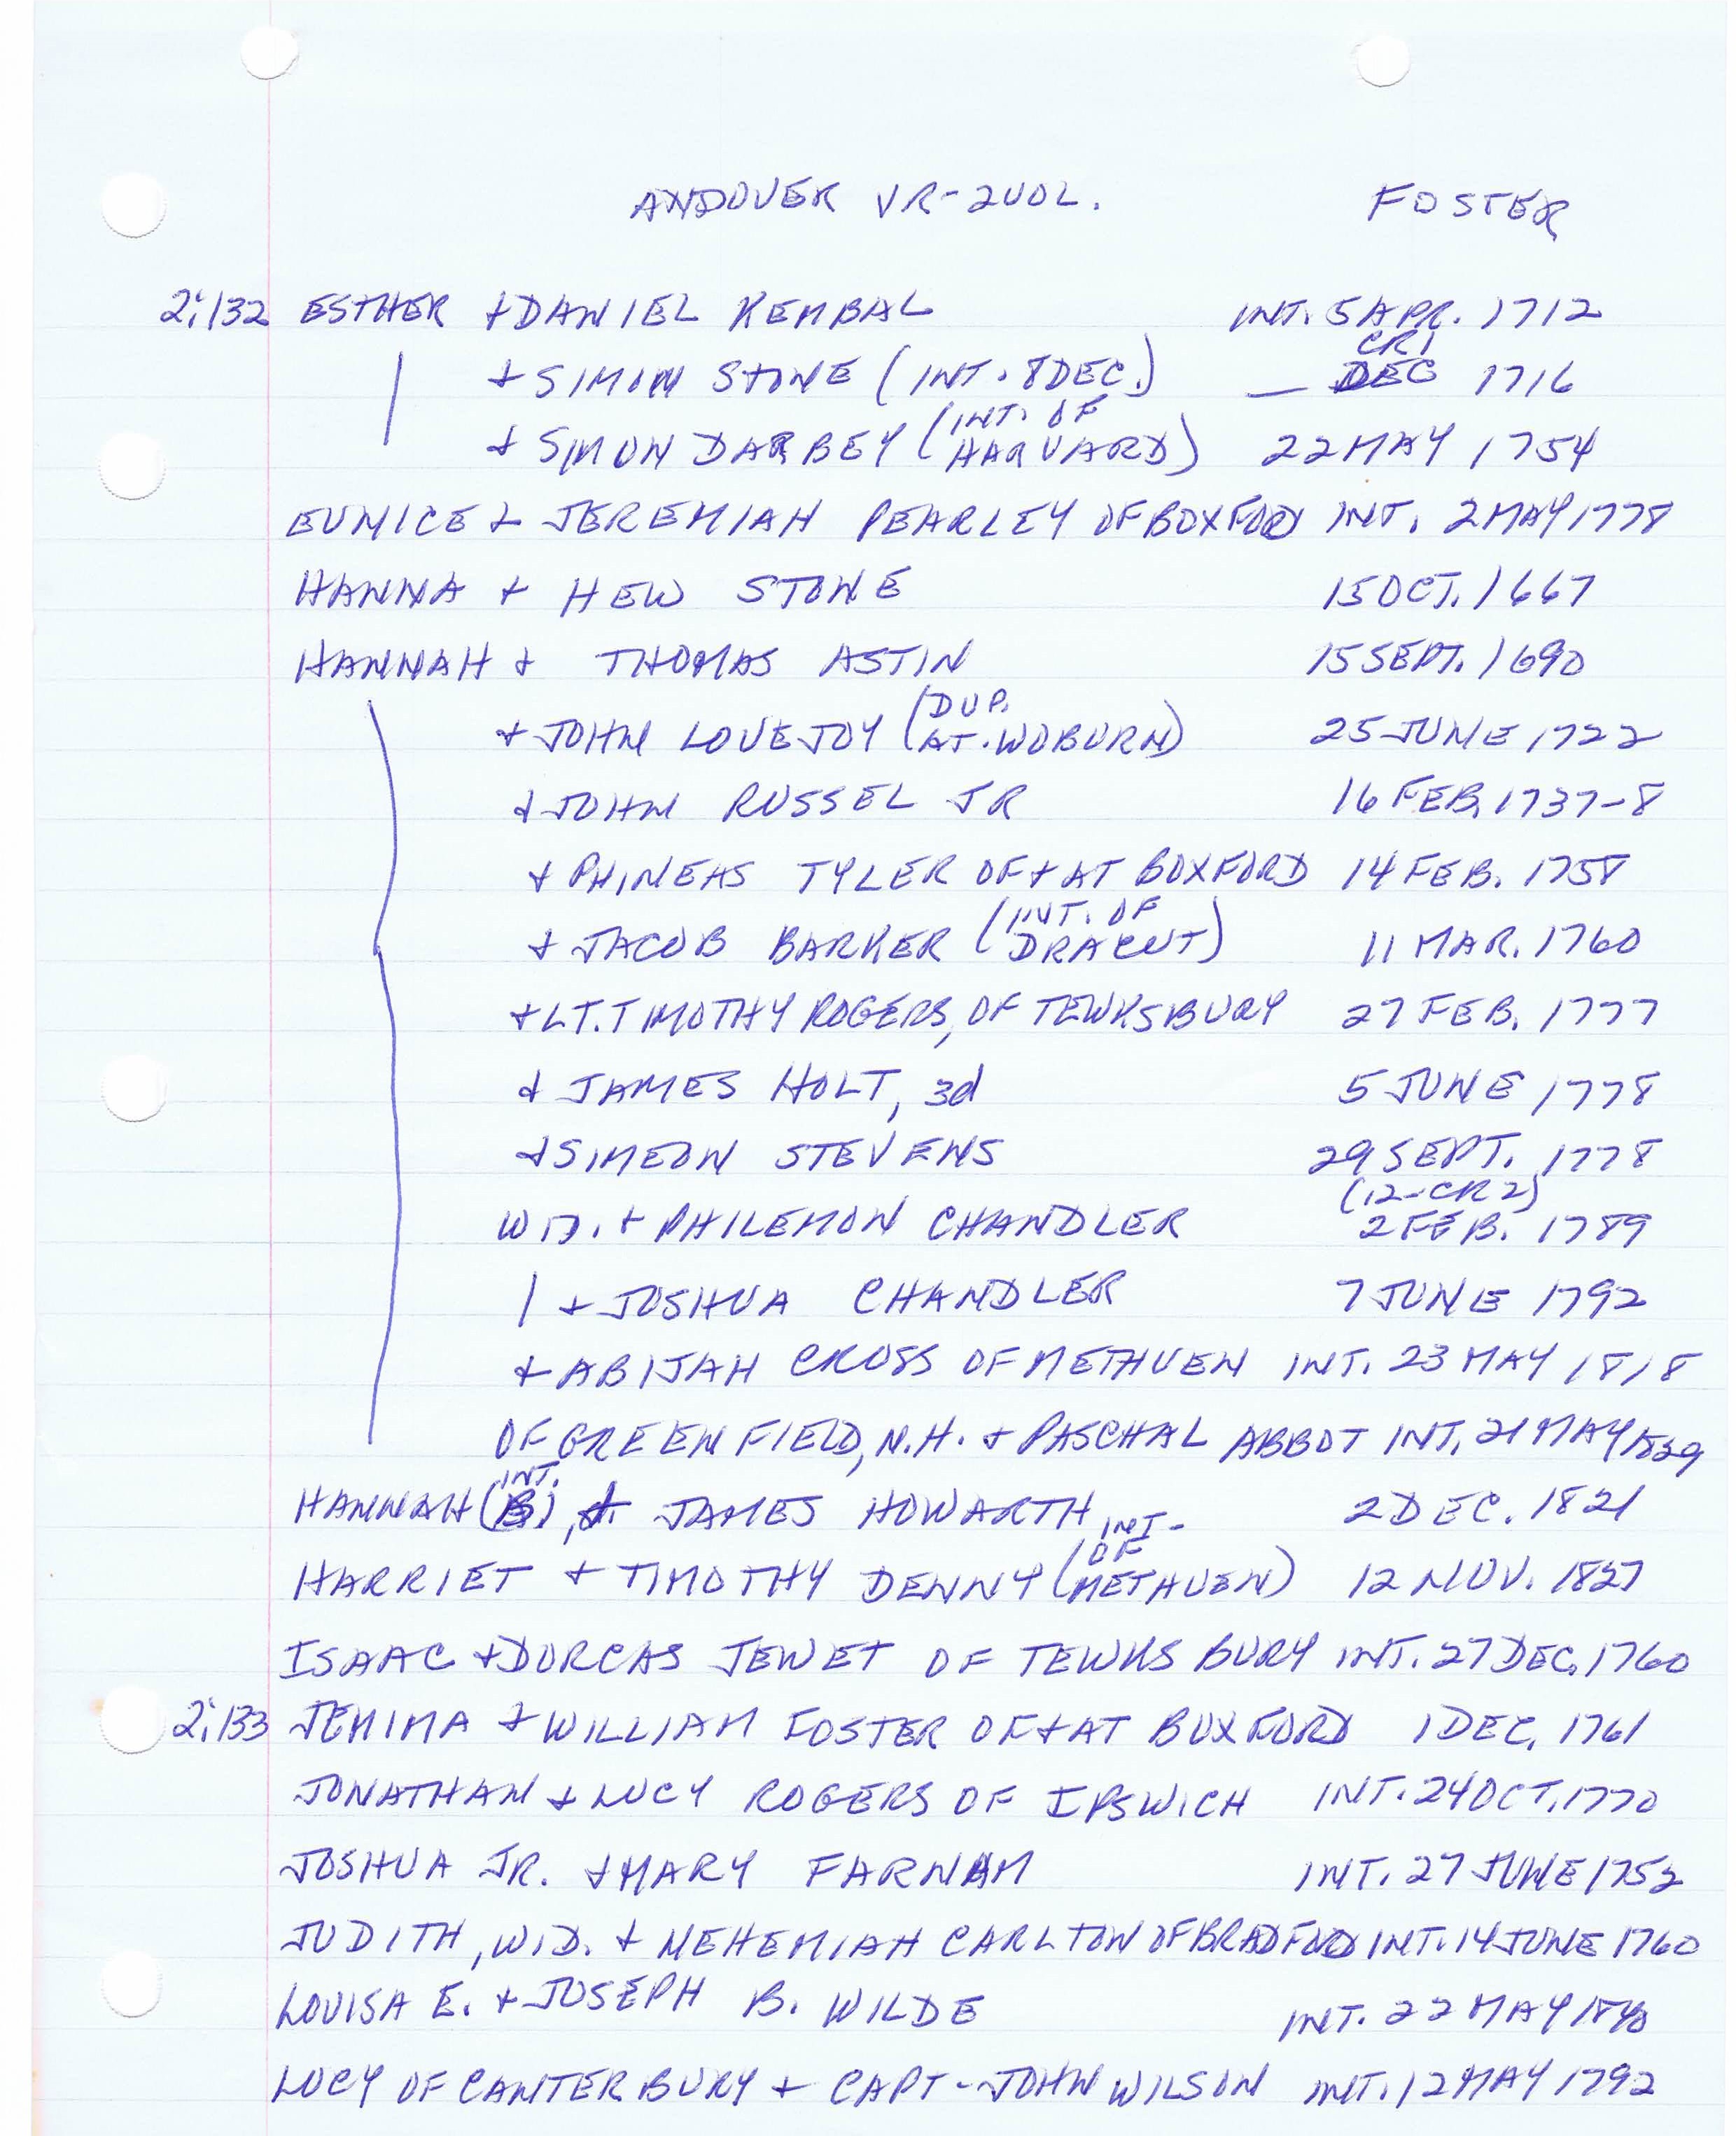 ANDOVER VR-2VOL. FOSTER
2:132 ESTHER + DANIEL KEMBAL INT. 5 APR. 1712
CR1
+ SIMON STONE (INT. 8 DEC.) — DEC 1716
(INT. OF
+ SIMON DARBEY HARVARD) 22 MAY 1754
EUNICE + JEREMIAH PEARLEY OF BOXFORD INT. 2 MAY 1778
HANNA + HEW STONE 15 OCT. 1667
HANNAH + THOMAS ASTIN 15 SEPT. 1690
(DUP.
+ JOHN LOVEJOY AT. WOBURN) 25 JUNE 1722
+ JOHN RUSSEL JR 16 FEB. 1737-8
+ PHINEAS TYLER OF + AT BOXFORD 14 FEB. 1758
(INT. OF
+ JACOB BARKER DRACUT) 11 MAR. 1760
+ LT. TIMOTHY ROGERS, OF TEWKSBURY 27 FEB. 1777
+ JAMES HOLT, 3d 5 JUNE 1778
+ SIMEON STEVENS 29 SEPT. 1778
(12-CR2)
WID. + PHILEMON CHANDLER 2 FEB. 1789
| + JOSHUA CHANDLER 7 JUNE 1792
+ ABIJAH CROSS OF METHUEN INT. 23 MAY 1818
OF GREENFIELD, N.H. + PASCHAL ABBOT INT. 21 MAY 1829
INT.
HANNAH (B), + JAMES HOWARTH 2 DEC. 1821
INT-
OF
HARRIET + TIMOTHY DENNY (METHUEN) 12 NOV. 1827
ISAAC + DORCAS JEWET OF TEWKSBURY INT. 27 DEC. 1760
2:133 JEMIMA + WILLIAM FOSTER OF + AT BOXFORD 1 DEC. 1761
JONATHAN + LUCY ROGERS OF IPSWICH INT. 24 OCT. 1770
JOSHUA JR. + MARY FARNAM INT. 27 JUNE 1752
JUDITH, WID. + NEHEMIAH CARLTON OF BRADFORD INT. 14 JUNE 1760
LOUISA E. + JOSEPH B. WILDE INT. 22 MAY 1840
LUCY OF CANTERBURY + CAPT- JOHN WILSON INT. 12 MAY 1792